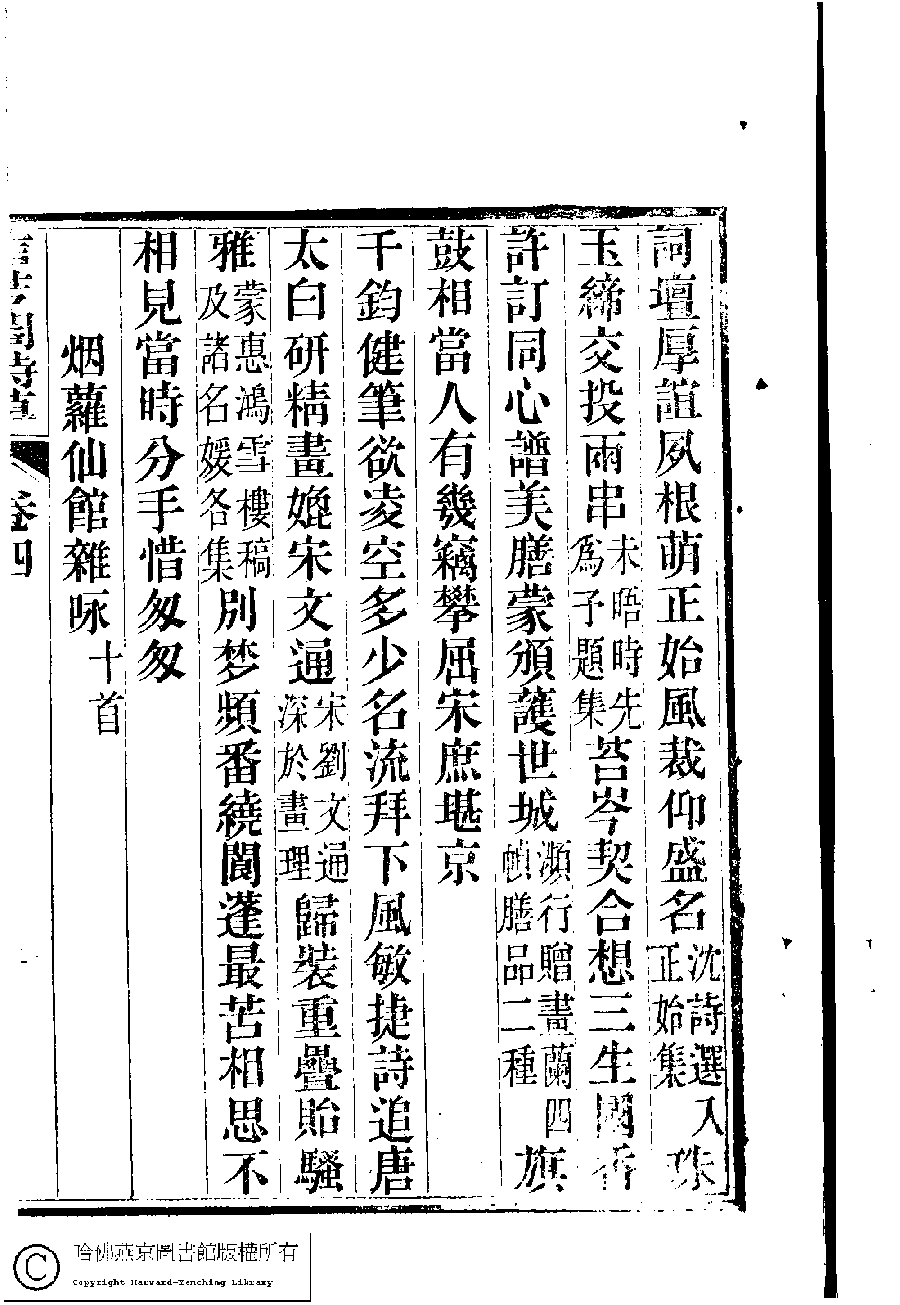 詞壇厚誼夙根萌正始風裁仰盛名沈詩選入正始集珠
玉締交投兩串未晤時先爲予題集苔岑契合想三生國香
許訂同心譜美膳蒙頒護世城瀕行贈畫蘭四幀膳品二種旗
鼓相當人有幾竊攀屈宋庶堪京
千鈞健筆欲凌空多少名流拜下風敏捷詩追唐
太白研精畫媲宋文通宋劉文通深於畫理歸裝重疊貽騷
雅蒙惠鴻雪樓稿及諸名媛各集別梦頻番繞閬蓬最苦相思不
相見當時分手惜匆匆
烟蘿仙館雜咏十首
卷四
哈佛燕京圖書館版權所有
Copyright Harvard-Yenching Library